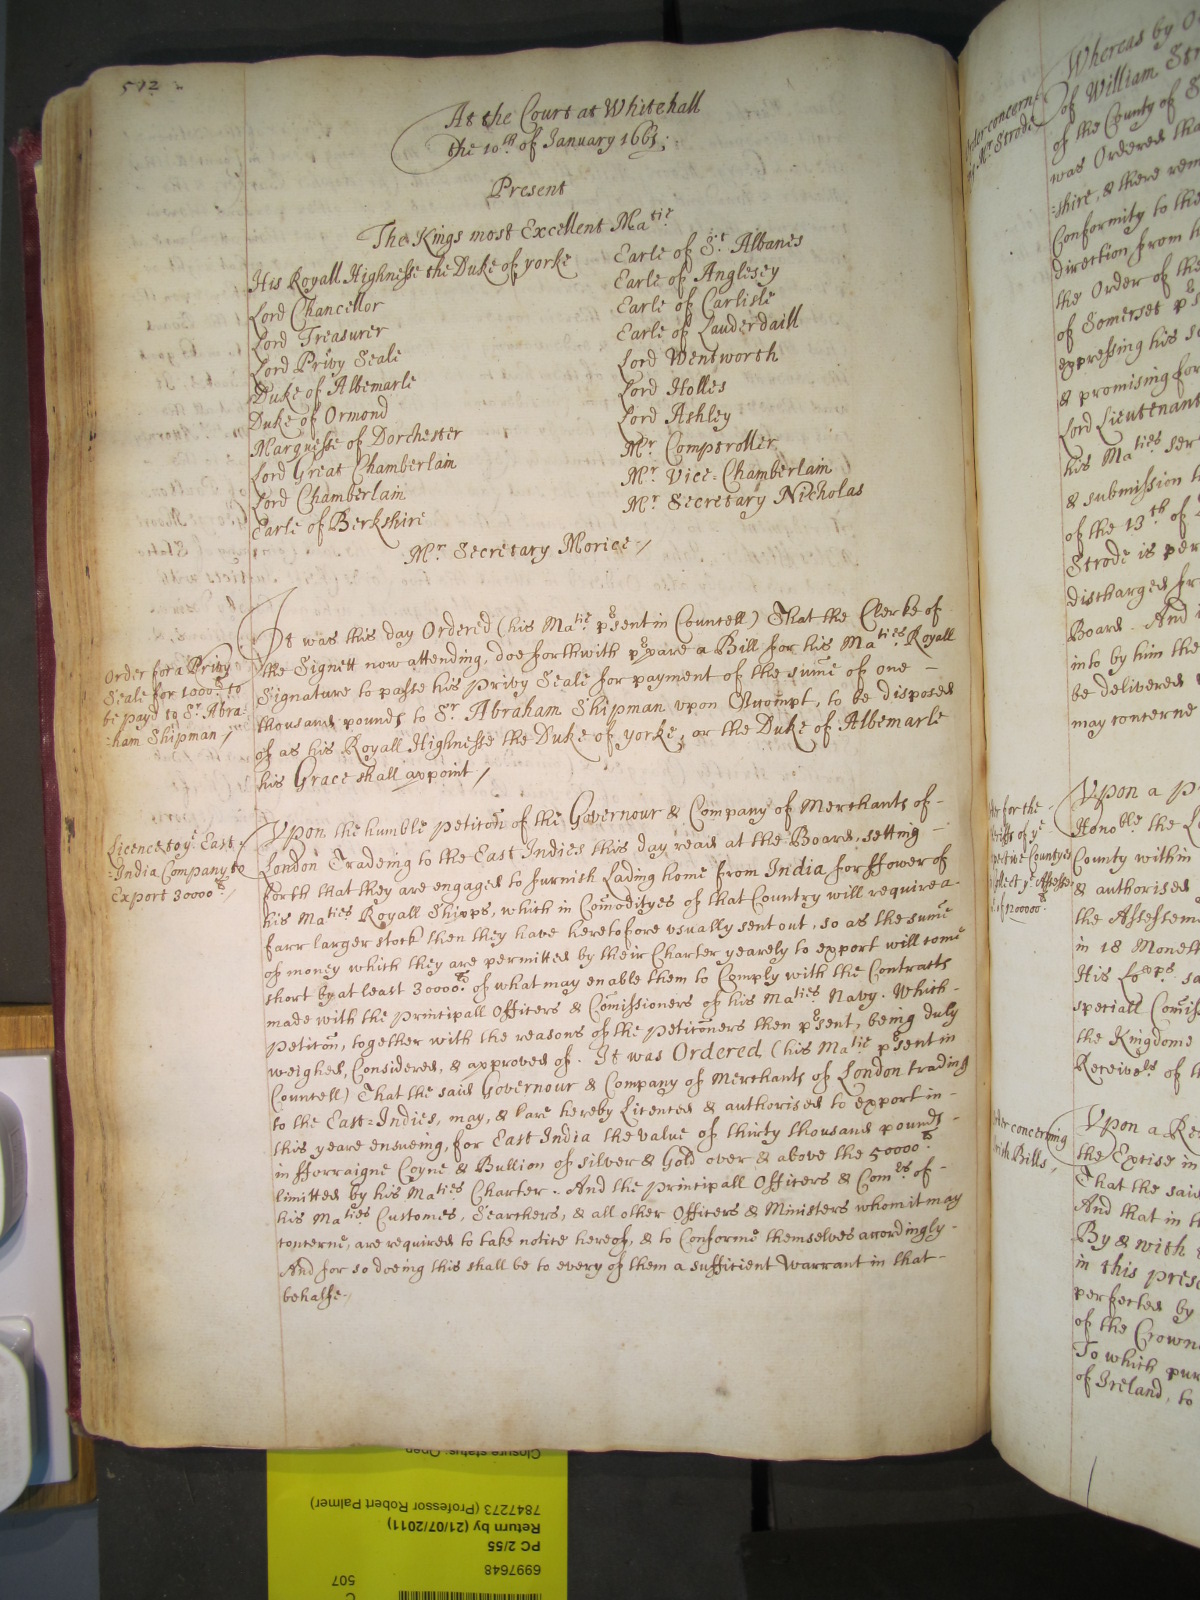 512
At the Court at Whitehall
the 10th of January 1661;
Present
The Kings most Excellent Matie
His Royall Highnesse the Duke of yorke
Lord Chancellor
Lord Treasurer
Lord Privy Seale
Duke of Albemarle
Duke of Ormond
Marquesse of Dorchester
Lord Great Chamberlain
Lord Chamberlain
Earle of Berkshire
Earle of St Albanes
Earle of Anglesey
Earle of Carlisle
Earle of Lauderdaill
Lord Wentworth
Lord Holles
Lord Ashley
Mr Comptroller
Mr Vice-Chamberlain
Mr Secretary Nicholas
Mr Secretary Morice /
Order for a Privy
Seale for 1000li to
be payd to Sr Abra-
-ham Shipman /
It was this day Ordered (his Matie psent in Councell) That the Clerke of
the Signett now attending, doe forthwith ppare a Bill for his Maties Royall
Signature to passe his Privy Seale for payment of the sume of one -
thousand pounds to Sr Abraham Shipman vpon Accompt, to be disposed
of as his Royall Highnesse the Duke of yorke, or the Duke of Albemarle
his Grace shall appoint /
Licence to ye East-
-India Company to
Export 30000li /
Vpon the humble petiton of the Governour & Company of Merchants of -
London Tradeing to the East Indies this day read at the Board, setting -
forth that they are engaged to furnish Lading home from India for ffower of
his Maties Royall Shipps, which in Comodityes of that Country will require a
farr larger stock then they have heretofore vsually sent out, so as the sume
of money which they are permitted by their Charter yearely to export will come
short by at least 30000li of what may enable them to Comply with the Contracts
made with the Principall Officers & Comissioners of his Maties Navy. Which -
Petiton, together with the reasons of the Petitoners then psent, being duly
weighed, Considered, & approved of. It was Ordered (his Matie psent in
Councell) That the said Governour & Company of Merchants of London trading
to the East-Indies, may, & are hereby Licenced & authorised to export in -
this yeare ensueing, for East India the value of thirty thousand pounds -
in fforraigne Coyne & Bullion of silver & Gold over & above the 50000li
limitted by his Maties Charter. And the Principall Officers & Comrs of -
his Maties Customes, Searchers, & all other Officers & Ministers whom it may
concerne, are required to take notice hereof, & to Conforme themselves accordingly -
And for so doeing this shall be to every of them a sufficient Warrant in that -
behalfe /
Mr Strode
Whereas by
of William
of the County of
was Ordered
-shire, & there
Conformity to the
direction from
the Order of the
of Somerset
expressing his
& promising for
Lord Lieutenant
his Maties
& submission
of the 13th of
Strode is
discharged
Board. And
into by him the
be delivered
may concerne
for the
Vpon a
Honoble the
County within
& authorised
the Assessem
in 18 Moneth
His Lopps
speciall Comis
the Kingdome
Receivers of
concerning
Bills,
Vpon a
the Excise in
That the said
And that in
By & with
in this
perfected by
of the Crowne
To which
of Ireland, to
Closure status: Open
7847273 (Professor Robert Palmer)
Return by (21/07/2011)
PC 2/55
6997648
507